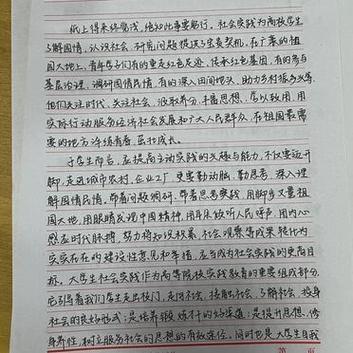 纸上得来终觉浅，绝知此事要躬行，社会实践为高校学生
了解国情，认识社会，研究问题提供了宝贵契机，在广袤的祖
国大地上，青年学子们有的重走红色足迹，传承红色基因，有的参与
基层治理，调研国情民情，有的深入田间地头，助力乡村振兴等，
他们关注时代，关注社会，汲取养分，丰富思想，学以致用，用
实际行动服务经济社会发展和广大人民群众，在祖国最需
要的地方淬炼青春，茁壮成长。
于学生而言，应提高主动实践的兴趣与能力，不仅要迈开
脚，走进城市农村，企业工厂，更要勤动脑，勤思考，深入理
解国情民情，带着问题调研，带着思考实践，用脚步丈量祖
国大地，用眼睛发现中国精神，用耳朵倾听人民呼声，用内心
感应时代脉搏，努力将知识积累，社会观察等成果转化为
实实在在的建设性意见和举措，在当成为社会实践的更高目
标。大学生社会实践作为高等院校实践教育的重要组成部分，
它引导着我们学生走出校门，走向社会，接触社会，了解社会，投身
社会的良好形式；是培养锻炼才干的好渠道；是提升思想，修
身养性，树立服务社会的思想的有效途径。同时也是大学生自我